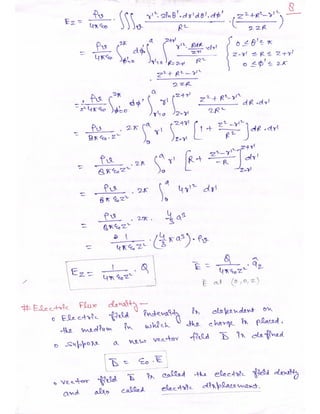 8
E_z = ρ_v/4πε₀ ∭ r'²·sinθ'·dr'dθ'.dφ' / R² · (z²+R²-r'²)/2zR
= ρ_v/4πε₀ ∫_{φ'=0}^{2π} dφ' ∫_{r'=0}^{a} ∫_{R=z-r'}^{z+r'} r'² RdR/R² dr'
0 ≤ θ' ≤ π
z-r' ≤ R ≤ z+r'
0 ≤ φ' ≤ 2π
z²+R²-r'² / 2zR
ρ_v ∫_{φ'=0}^{2π} dφ' ∫_{0}^{a} r' ∫_{z-r'}^{z+r'} z²+R²-r'² / 2R² dR.dr'
= ρ_v/8πε₀.z² · 2π ∫_{0}^{a} r' ∫_{z-r'}^{z+r'} [1 + z²-r'²/R²] dR.dr'
= ρ_v/8πε₀z² · 2π ∫_{0}^{a} r' [R + z²-r'²/R]_{z-r'}^{z+r'} dr'
= ρ_v/8πε₀z² · 2π ∫_{0}^{a} 4r'² dr'
= ρ_v/8πε₀z² · 2π. 4/3 a³
= 1/4πε₀z² · (4/3 πa³)·ρ_v
E_z = 1/4πε₀z² · Q
E̅ = Q/4πε₀z² · â_z
E at (0,0,z)
# Electric Flux density —
o Electric field intensity is dependent on
the medium in which the charge is placed.
o suppose a new vector field D̅ is defined
D̅ = ε₀.E̅
o vector field D̅ is called the electric field density
and also called electric displacement.